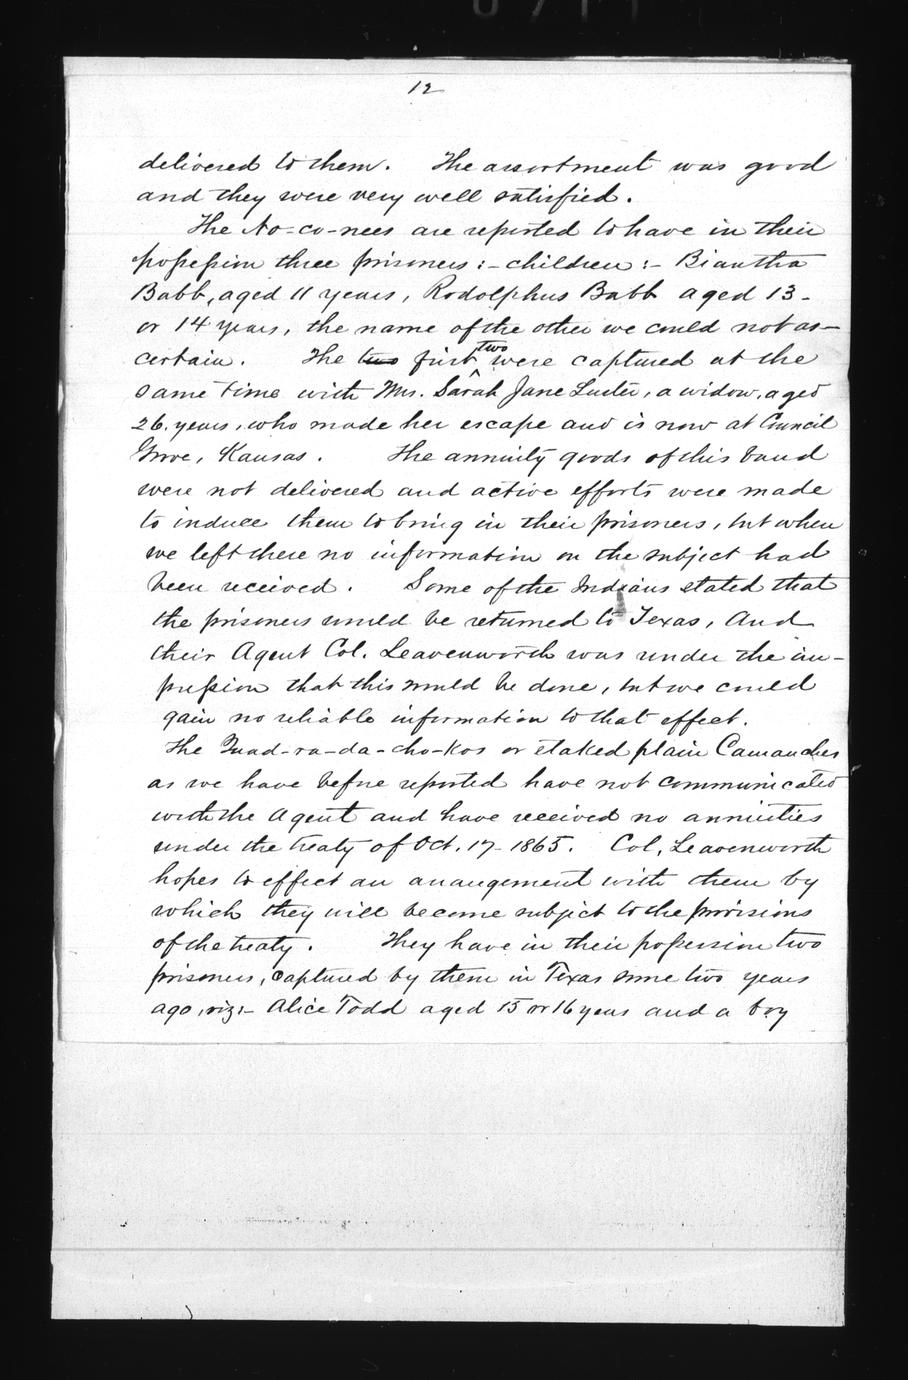 12
delivered to them. The assortment was good
and they were very well satisfied.
The No-co-nees are reported to have in their
possession three prisoners:- children:- Biantha
Babb, aged 11 years, Rodolphus Babb aged 13-
or 14 years, the name of the other we could not as-
certain. The two first two were captured at the
same time with Mrs. Sarah Jane Luster, a widow, aged
26. years, who made her escape and is now at Council
Grove, Kansas. The annuity goods of this band
were not delivered and active efforts were made
to induce them to bring in their prisoners, but when
we left there no information on the subject had
been received. Some of the Indians stated that
the prisoners would be returned to Texas, And
their Agent Col. Leavenworth was under the im-
pression that this would be done, but we could
gain no reliable information to that effect.
The Quad-ra-da-cho-kos or staked plain Camanches
as we have before reported have not communicated
with the Agent and have received no annuities
under the treaty of Oct. 17- 1865. Col, Leavenworth
hopes to effect an arrangement with them by
which they will become subject to the provisions
of the treaty. They have in their possession two
prisoners, captured by them in Texas some two years
ago, viz:- Alice Todd aged 15 or 16 years and a boy